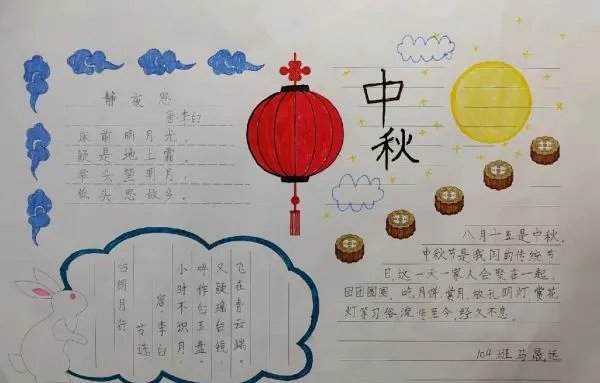 静夜思
唐·李白
床前明月光，
疑是地上霜。
举头望明月，
低头思故乡。
中秋
古朗月行
节选
唐·李白
小时不识月，
呼作白玉盘。
又疑瑶台镜，
飞在青云端。
八月十五是中秋，
中秋节是我国的传统节
日，这一天一家人会聚在一起，
团团圆圆、吃月饼、赏月、放孔明灯、赏花
灯等习俗，流传至今，经久不息。
104班 马晟远